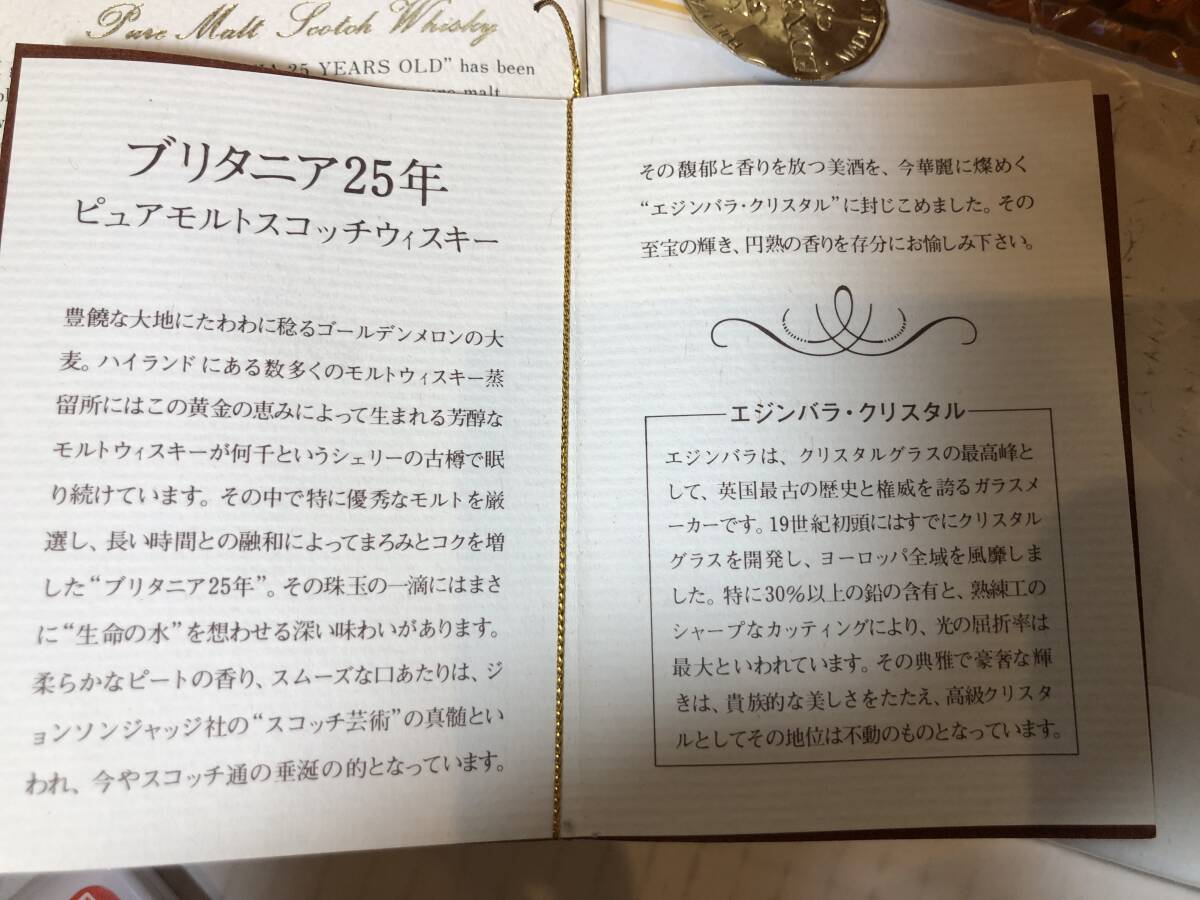 Pure Malt Scotch Whisky
25 YEARS OLD" has been
ブリタニア25年
ピュアモルトスコッチウィスキー
豊饒な大地にたわわに稔るゴールデンメロンの大
麦。ハイランドにある数多くのモルトウィスキー蒸
留所にはこの黄金の恵みによって生まれる芳醇な
モルトウィスキーが何千というシェリーの古樽で眠
り続けています。その中で特に優秀なモルトを厳
選し、長い時間との融和によってまろみとコクを増
した“ブリタニア25年”。その珠玉の一滴にはまさ
に“生命の水”を想わせる深い味わいがあります。
柔らかなピートの香り、スムーズな口あたりは、ジ
ョンソンジャッジ社の“スコッチ芸術”の真髄とい
われ、今やスコッチ通の垂涎の的となっています。
その馥郁と香りを放つ美酒を、今華麗に燦めく
“エジンバラ・クリスタル”に封じこめました。その
至宝の輝き、円熟の香りを存分にお愉しみ下さい。
エジンバラ・クリスタル
エジンバラは、クリスタルグラスの最高峰と
して、英国最古の歴史と権威を誇るガラスメ
ーカーです。19世紀初頭にはすでにクリスタル
グラスを開発し、ヨーロッパ全域を風靡しま
した。特に30%以上の鉛の含有と、熟練工の
シャープなカッティングにより、光の屈折率は
最大といわれています。その典雅で豪奢な輝
きは、貴族的な美しさをたたえ、高級クリスタ
ルとしてその地位は不動のものとなっています。